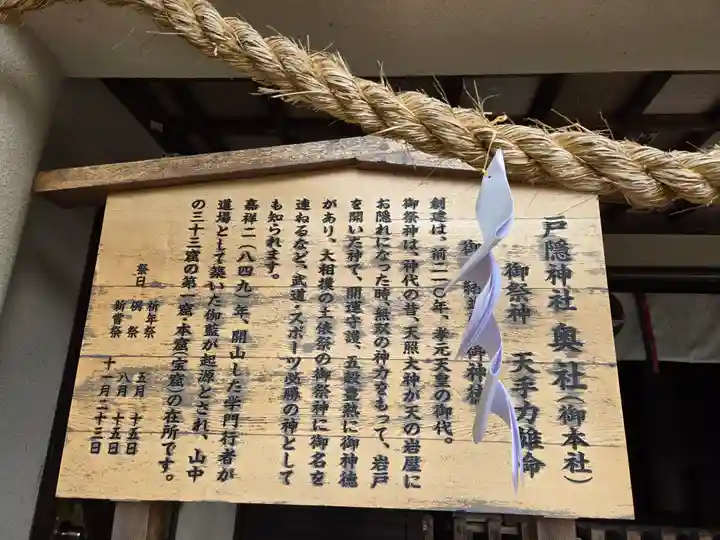 戸隠神社 奥社(御本社)
御祭神 天手力雄命
御
創建は、前二一〇年、孝元天皇の御代。
御祭神は、神代の昔、天照大神が天の岩屋に
お隠れになった時、無双の神力をもって、岩戸
を開いた神で、開運守護、五穀豊熟に御神徳
があり、大相撲の土俵祭の御祭神に御名を
連ねるなど、武道・スポーツ必勝の神として
も知られます。
嘉祥二(八四九)年、開山した学門行者が
道場として築いた伽藍が起源とされ、山中
の三十三窟の第一窟・本窟(宝窟)の在所です。
祭日 祈年祭 五月 十五日
例祭 八月 十五日
新嘗祭 十一月二十三日